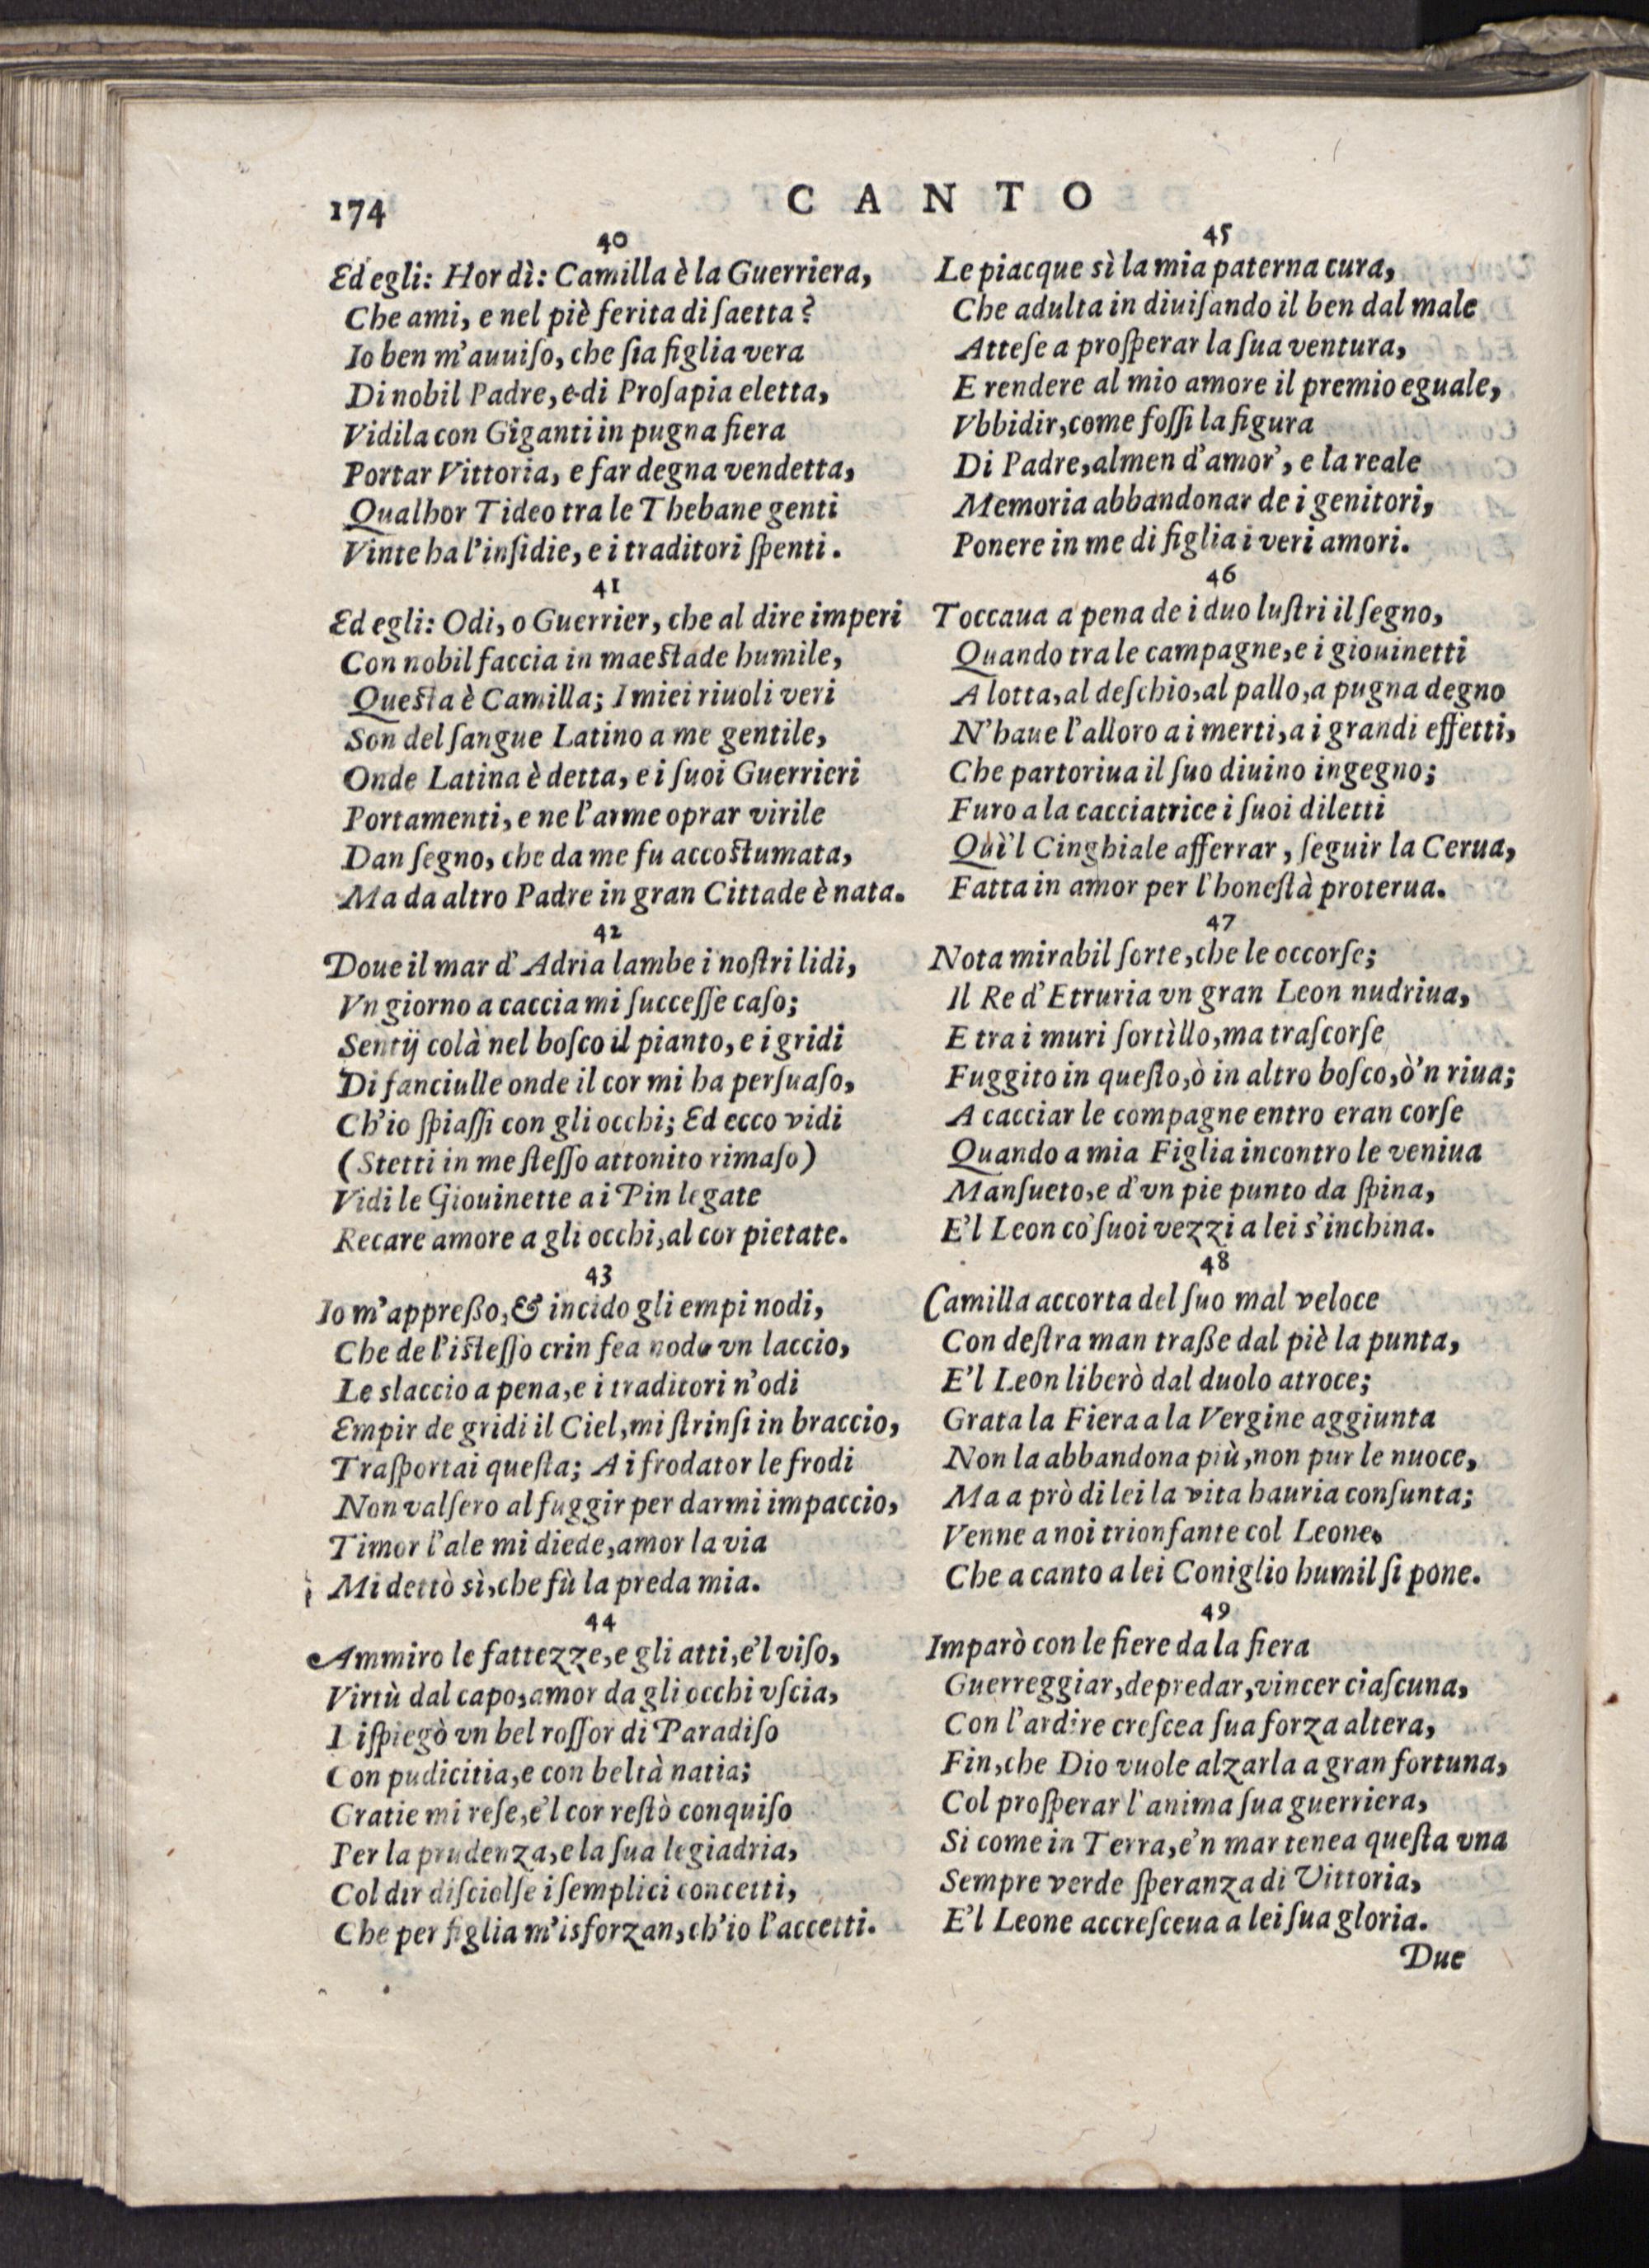 174
CANTO
40
Ed egli: Hor dì: Camilla è la Guerriera,
Che ami, e nel piè ferita di ſaetta?
Io ben m'auuiſo, che ſia figlia vera
Di nobil Padre, e di Proſapia eletta,
Vidila con Giganti in pugna fiera
Portar Vittoria, e far degna vendetta,
Qualhor Tideo tra le Thebane genti
Vinte ha l'inſidie, e i traditori ſpenti.
41
Ed egli: Odi, o Guerrier, che al dire imperi
Con nobil faccia in maeſtade humile,
Queſta è Camilla; I miei riuoli veri
Son del ſangue Latino a me gentile,
Onde Latina è detta, e i ſuoi Guerrieri
Portamenti, e ne l'arme oprar virile
Dan ſegno, che da me fu accoſtumata,
Ma da altro Padre in gran Cittade è nata.
42
Doue il mar d'Adria lambe i noſtri lidi,
Vn giorno a caccia mi ſucceſſe caſo;
Sentij colà nel boſco il pianto, e i gridi
Di fanciulle onde il cor mi ha perſuaſo,
Ch'io ſpiaſſi con gli occhi; Ed ecco vidi
(Stetti in me ſteſſo attonito rimaſo)
Vidi le Giouinette a i Pin legate
Recare amore a gli occhi, al cor pietate.
43
Io m'appreßo, & incido gli empi nodi,
Che de l'iſteſſo crin fea nodo vn laccio,
Le slaccio a pena, e i traditori n'odi
Empir de gridi il Ciel, mi ſtrinſi in braccio,
Traſportai queſta; A i frodator le frodi
Non valſero al fuggir per darmi impaccio,
Timor l'ale mi diede, amor la via
Mi dettò sì, che fù la preda mia.
44
Ammiro le fattezze, e gli atti, e'l viſo,
Virtù dal capo, amor da gli occhi vſcia,
I iſpiegò vn bel roſſor di Paradiſo
Con pudicitia, e con beltà natia;
Gratie mi reſe, e'l cor reſtò conquiſo
Per la prudenza, e la ſua legiadria,
Col dir diſciolſe i ſemplici concetti,
Che per figlia m'isforzan, ch'io l'accetti.
45
Le piacque sì la mia paterna cura,
Che adulta in diuiſando il ben dal male
Atteſe a proſperar la ſua ventura,
E rendere al mio amore il premio eguale,
Vbbidir, come foſſi la figura
Di Padre, almen d'amor', e la reale
Memoria abbandonar de i genitori,
Ponere in me di figlia i veri amori.
46
Toccaua a pena de i duo luſtri il ſegno,
Quando tra le campagne, e i giouinetti
A lotta, al deſchio, al pallo, a pugna degno
N'haue l'alloro a i merti, a i grandi effetti,
Che partoriua il ſuo diuino ingegno;
Furo a la cacciatrice i ſuoi diletti
Quì'l Cinghiale afferrar, ſeguir la Cerua,
Fatta in amor per l'honeſtà proterua.
47
Nota mirabil ſorte, che le occorſe;
Il Re d'Etruria vn gran Leon nudriua,
E tra i muri ſortìllo, ma traſcorſe
Fuggito in queſto, ò in altro boſco, ò'n riua;
A cacciar le compagne entro eran corſe
Quando a mia Figlia incontro le veniua
Manſueto, e d'vn pie punto da ſpina,
E'l Leon co' ſuoi vezzi a lei s'inchina.
48
Camilla accorta del ſuo mal veloce
Con deſtra man traße dal piè la punta,
E'l Leon liberò dal duolo atroce;
Grata la Fiera a la Vergine aggiunta
Non la abbandona più, non pur le nuoce,
Ma a prò di lei la vita hauria conſunta;
Venne a noi trionfante col Leone.
Che a canto a lei Coniglio humil ſi pone.
49
Imparò con le fiere da la fiera
Guerreggiar, depredar, vincer ciaſcuna,
Con l'ardire creſcea ſua forza altera,
Fin, che Dio vuole alzarla a gran fortuna,
Col proſperar l'anima ſua guerriera,
Si come in Terra, e'n mar tenea queſta vna
Sempre verde ſperanza di Vittoria,
E'l Leone accreſceua a lei ſua gloria.
Due